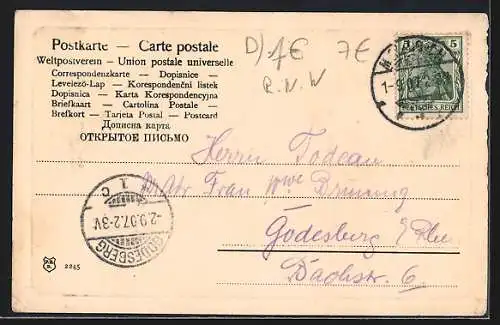 Postkarte — Carte postale
Weltpostverein — Union postale universelle
Correspondenzkarte — Dopisnice —
Levelező-Lap — Korespondenční lístek
Dopisnica — Karta Korespondencyjna
Briefkaart — Cartolina Postale —
Brefkort — Tarjeta Postal — Postcard
Дописна карта
ОТКРЫТОЕ ПИСЬМО
D/ 1€ 7€
R.N.W
5 5
1-9.07
DEUTSCHES REICH
Herrn Todeau
Frau wwe Brünung
Godesburg a/Rhein
Bachstr. 6.
GODESBERG
-2.9.07.2-3V
1 C
2265